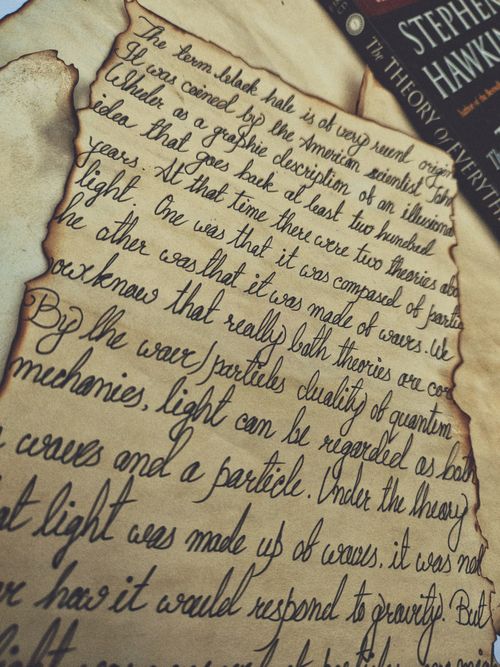 The term black hole is of very recent origin
It was coined by the American scientist John
Wheeler as a graphic description of an illusiona
idea that goes back at least two hundred
years. At that time there were two theories abo
light. One was that it was composed of partic
he other was that it was made of waves. We
ow know that really both theories are cor
By the wave/particles duality of quantum
mechanies, light can be regarded as both
waves and a particle. Under the theory
at light was made up of waves, it was not
how it would respond to gravity. But
STEPHEN
HAWKIN
The THEORY OF EVERYTH